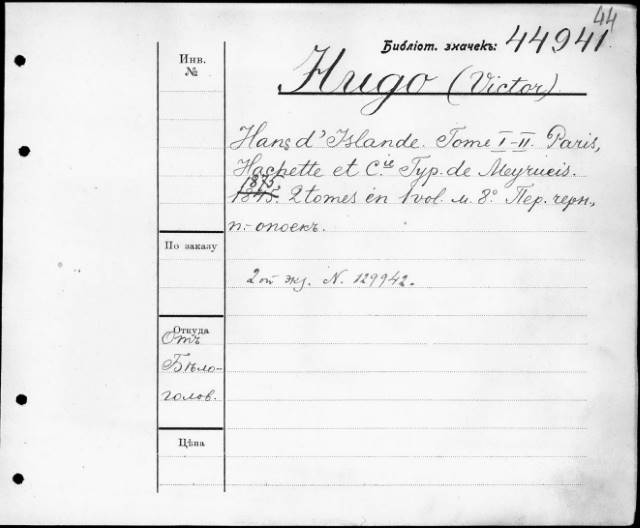 44
Библіот. значекъ: 44941.
Инв.
№
Hugo (Victor)
Hans d'Islande. Tome I-II. Paris,
Hachette et C.ie Typ. de Meyrueis.
1875
1845. 2 tomes en 1 vol. м. 8º. Пер. черн.
п.-опоекъ.
По заказу
2ой экз. N. 129942.
Откуда
Отъ
Бѣло-
голов.
Цѣна